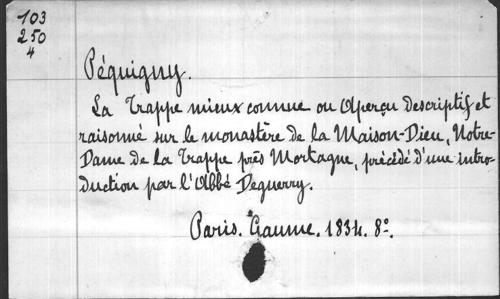 103
250
4
Péquigny.
La Trappe mieux connue ou Aperçu descriptif et
raisonné sur le monastère de la Maison-Dieu, Notre-
Dame de la Trappe près Mortagne, précédé d'une intro-
duction par l'Abbé Deguerry.
Paris. Gaume. 1834. 8°.